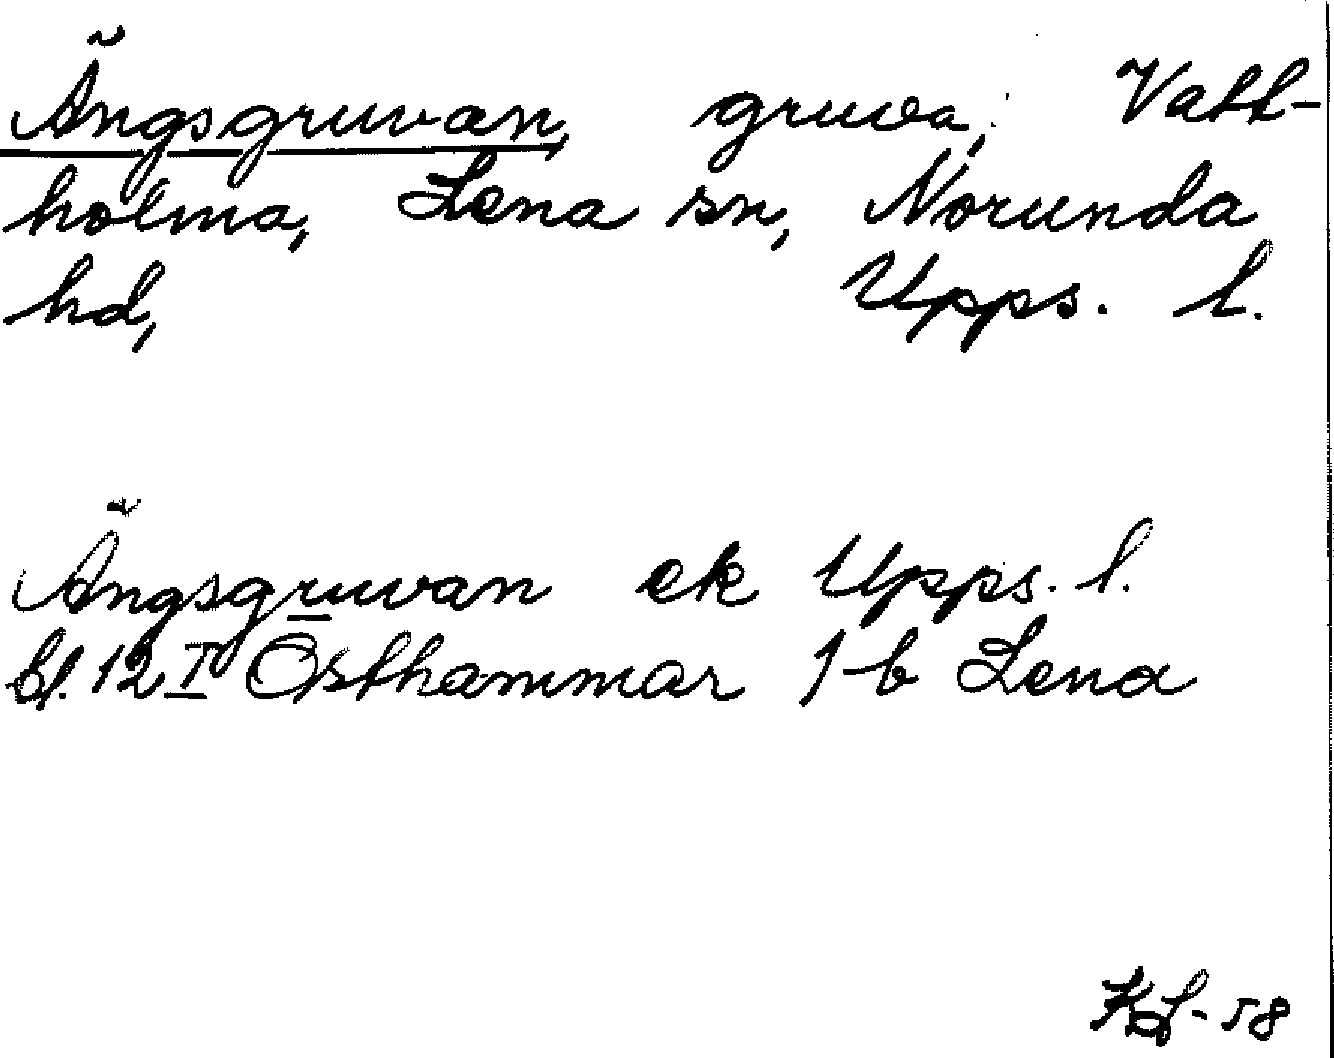 Ängsgruvan, gruva, Vatt-
holma, Lena sn, Norunda
hd, Upps. l.
Ängsgruvan ek Upps. l.
bl. 12 I Östhammar 1 b Lena
-58